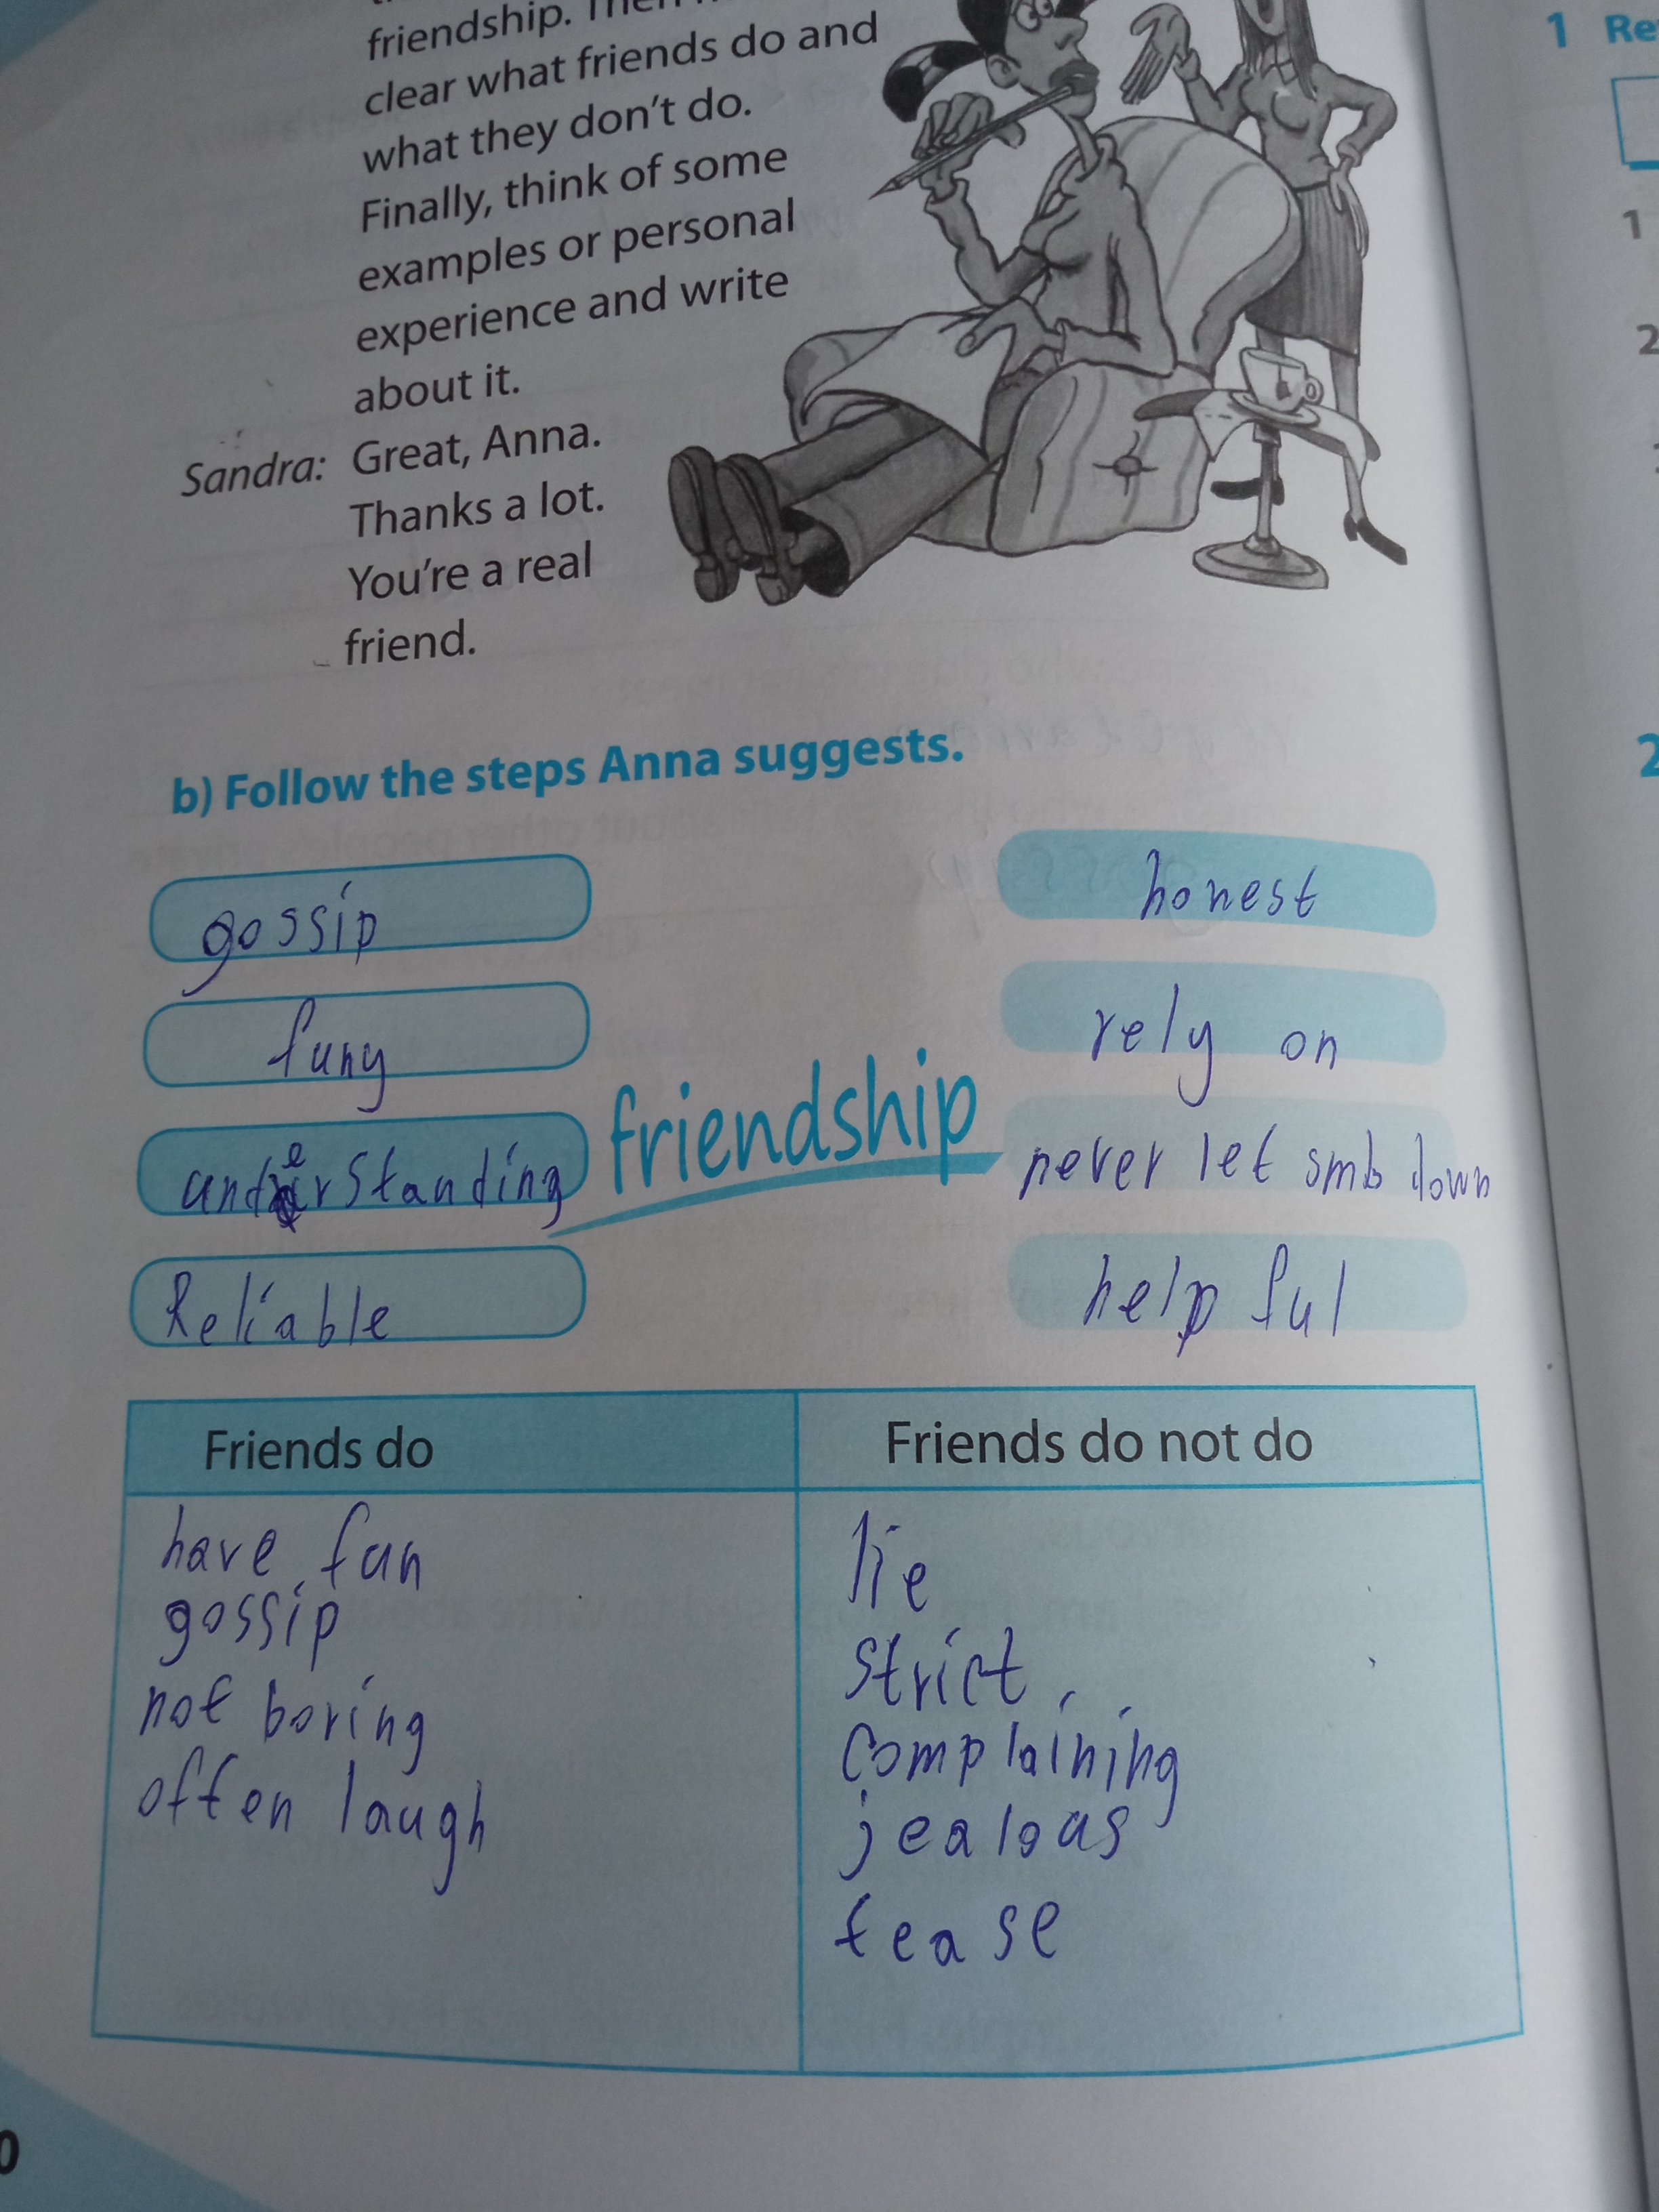 friendship. Then
clear what friends do and
what they don't do.
Finally, think of some
examples or personal
experience and write
about it.
Sandra: Great, Anna.
Thanks a lot.
You're a real
friend.
b) Follow the steps Anna suggests.
gossip
funy
understanding
Reliable
friendship
honest
rely on
never let smb down
helpful
Friends do
have fun
gossip
not boring
often laugh
Friends do not do
lie
strict
complaining
jealous
tease
0
1 Re
1
2
2